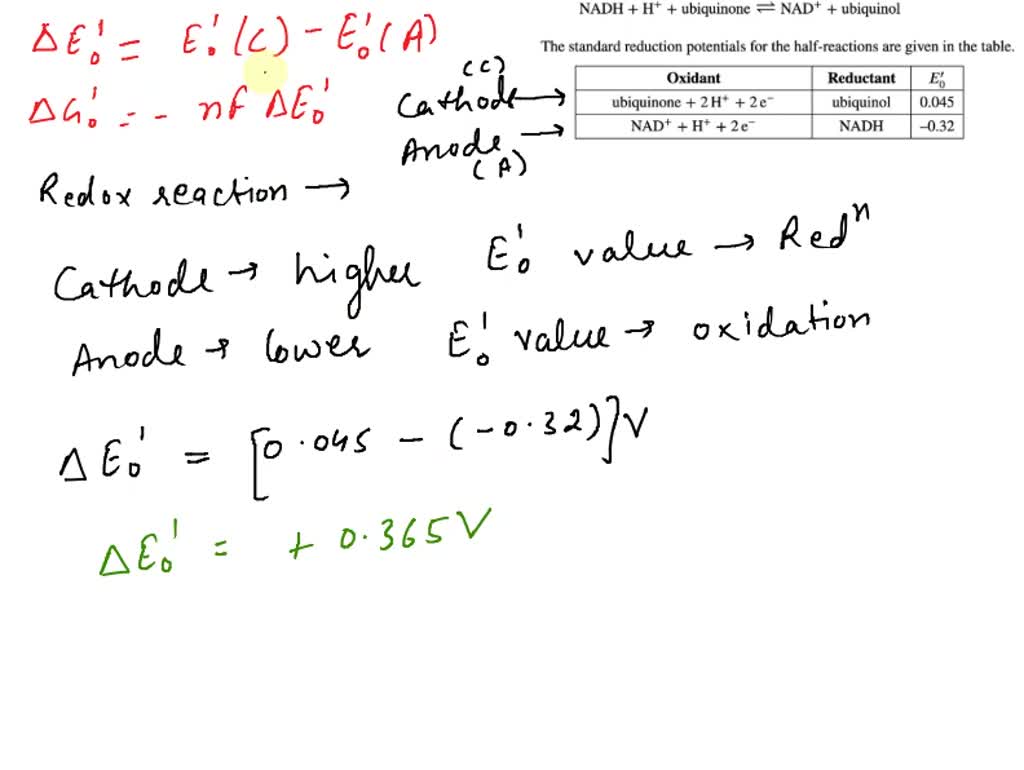 NADH + H⁺ + ubiquinone ⇌ NAD⁺ + ubiquinol
The standard reduction potentials for the half-reactions are given in the table.
Oxidant Reductant E₀′
ubiquinone + 2 H⁺ + 2 e⁻ ubiquinol 0.045
NAD⁺ + H⁺ + 2 e⁻ NADH −0.32
ΔE₀' = E₀'(C) − E₀'(A)
ΔG₀' = − nf ΔE₀'
(C)
Cathode →
Anode →
(A)
Redox reaction →
Cathode → higher E₀' value → Redⁿ
Anode → lower E₀' value → oxidation
ΔE₀' = [0.045 − (−0.32)]V
ΔE₀' = + 0.365 V